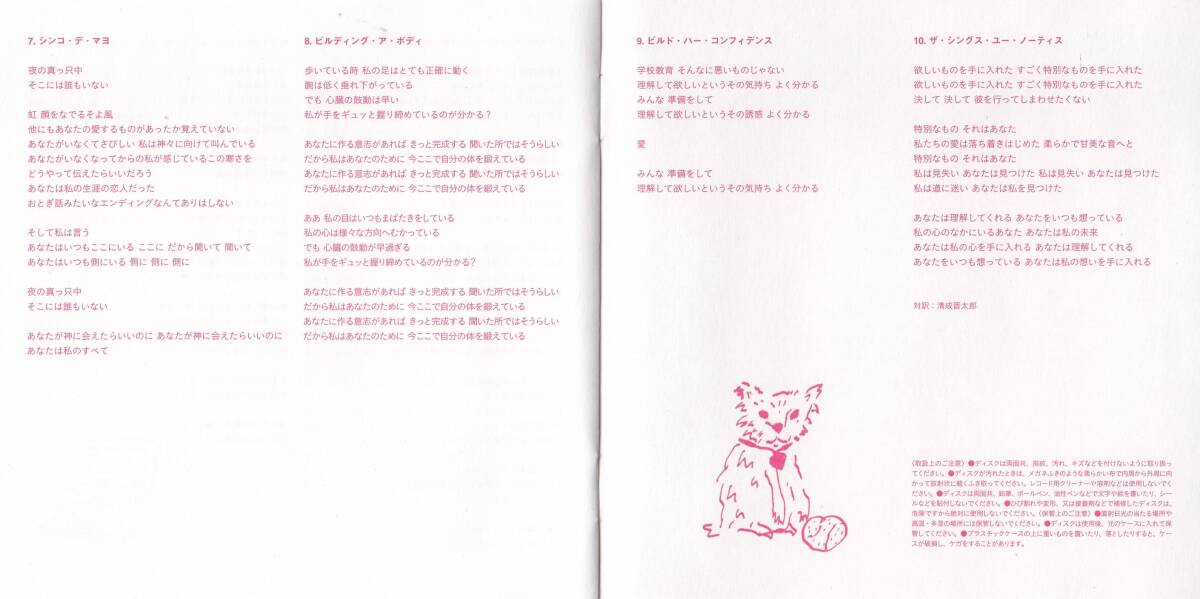 7. シンコ・デ・マヨ
夜の真っ只中
そこには誰もいない
虹 顔をなでるそよ風
他にもあなたの愛するものがあったか覚えていない
あなたがいなくてさびしい 私は神々に向けて叫んでいる
あなたがいなくなってからの私が感じているこの寒さを
どうやって伝えたらいいだろう
あなたは私の生涯の恋人だった
おとぎ話みたいなエンディングなんてありはしない
そして私は言う
あなたはいつもここにいる ここに だから聞いて 聞いて
あなたはいつも側にいる 側に 側に 側に
夜の真っ只中
そこには誰もいない
あなたが神に会えたらいいのに あなたが神に会えたらいいのに
あなたは私のすべて
8. ビルディング・ア・ボディ
歩いている時 私の足はとても正確に動く
腕は低く垂れ下がっている
でも 心臓の鼓動は早い
私が手をギュッと握り締めているのが分かる？
あなたに作る意志があれば きっと完成する 聞いた所ではそうらしい
だから私はあなたのために 今ここで自分の体を鍛えている
あなたに作る意志があれば きっと完成する 聞いた所ではそうらしい
だから私はあなたのために 今ここで自分の体を鍛えている
ああ 私の目はいつもまばたきをしている
私の心は様々な方向へむかっている
でも 心臓の鼓動が早過ぎる
私が手をギュッと握り締めているのが分かる？
あなたに作る意志があれば きっと完成する 聞いた所ではそうらしい
だから私はあなたのために 今ここで自分の体を鍛えている
あなたに作る意志があれば きっと完成する 聞いた所ではそうらしい
だから私はあなたのために 今ここで自分の体を鍛えている
9. ビルド・ハー・コンフィデンス
学校教育 そんなに悪いものじゃない
理解して欲しいというその気持ち よく分かる
みんな 準備をして
理解して欲しいというその誘惑 よく分かる
愛
みんな 準備をして
理解して欲しいというその気持ち よく分かる
10. ザ・シングス・ユー・ノーティス
欲しいものを手に入れた すごく特別なものを手に入れた
欲しいものを手に入れた すごく特別なものを手に入れた
決して 決して 彼を行ってしまわせたくない
特別なもの それはあなた
私たちの愛は落ち着きはじめた 柔らかで甘美な音へと
特別なもの それはあなた
私は見失い あなたは見つけた 私は見失い あなたは見つけた
私は道に迷い あなたは私を見つけた
あなたは理解してくれる あなたをいつも想っている
私の心のなかにいるあなた あなたは私の未来
あなたは私の心を手に入れる あなたは理解してくれる
あなたをいつも想っている あなたは私の想いを手に入れる
対訳：清成晋太郎
〈取扱上のご注意〉●ディスクは両面共、指紋、汚れ、キズなどを付けないように取り扱っ
てください。●ディスクが汚れたときは、メガネふきのような柔らかい布で内周から外周に向
かって放射状に軽くふき取ってください。レコード用クリーナーや溶剤などは使用しないでく
ださい。●ディスクは両面共、鉛筆、ボールペン、油性ペンなどで文字や絵を書いたり、シー
ルなどを貼付しないでください。●ひび割れや変形、又は接着剤などで補修したディスクは、
危険ですから絶対に使用しないでください。〈保管上のご注意〉●直射日光の当たる場所や
高温・多湿の場所には保管しないでください。●ディスクは使用後、元のケースに入れて保
管してください。●プラスチックケースの上に重いものを置いたり、落としたりすると、ケー
スが破損し、ケガをすることがあります。